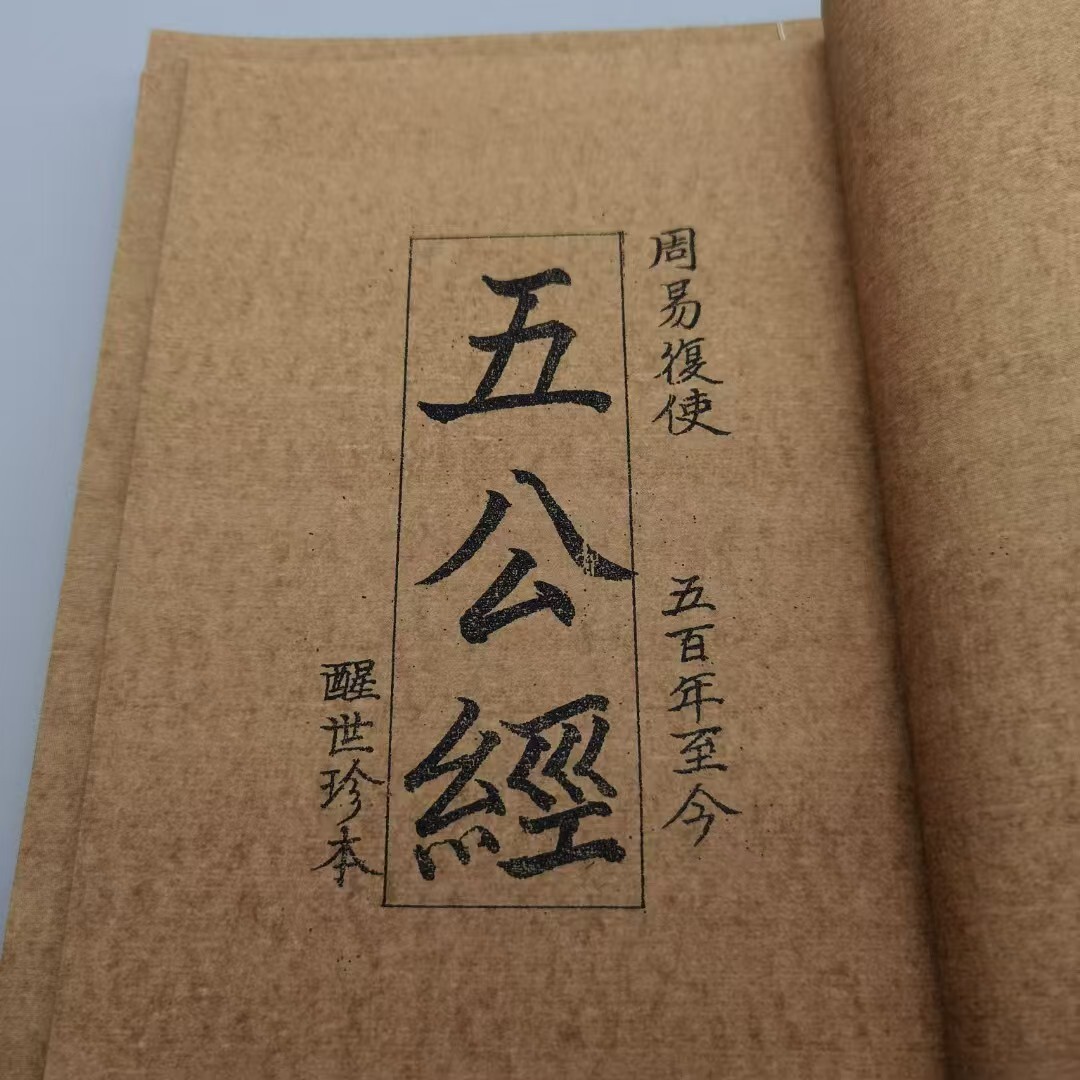 周易復使 五百年至今
五公經
醒世珍本